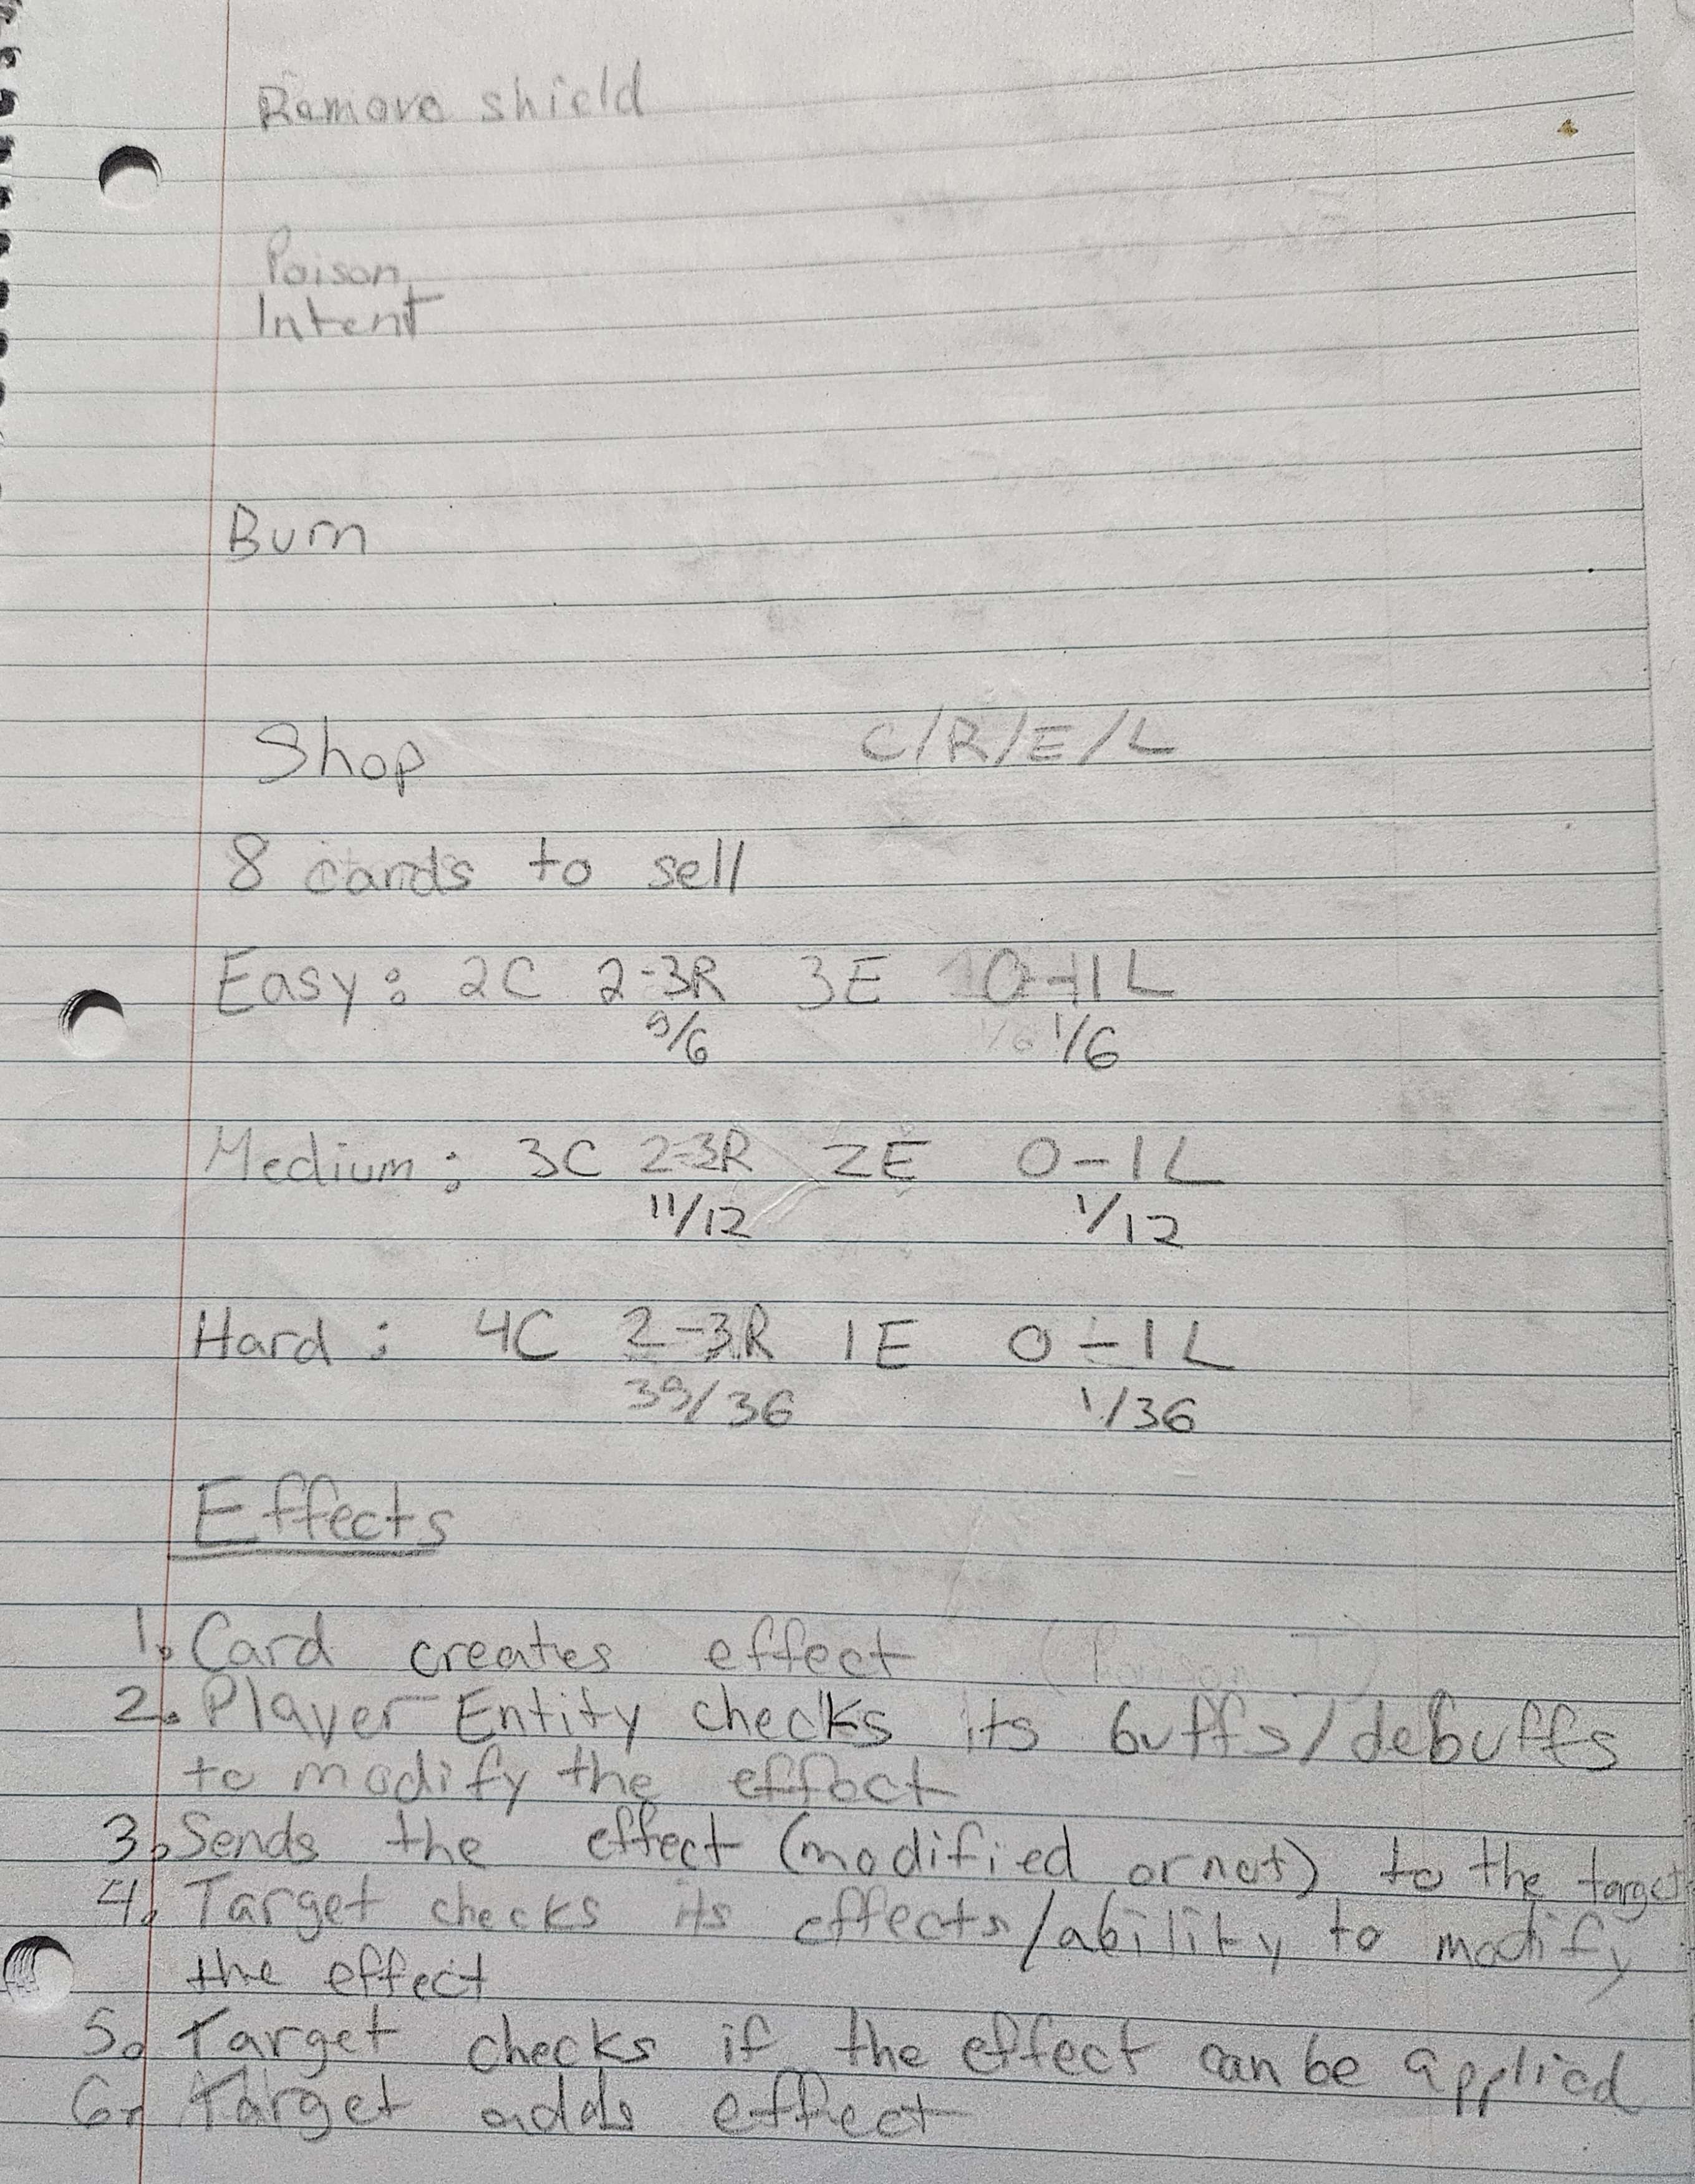 Remove shield
Poison
Intent
Burn
Shop C/R/E/L
8 cards to sell
Easy: 2C 2-3R 3E 0-1L
5/6 1/6 1/6
Medium: 3C 2-3R 2E 0-1L
11/12 1/12
Hard: 4C 2-3R 1E 0-1L
35/36 1/36
Effects
1. Card creates effect
2. Player Entity checks its buffs/debuffs
to modify the effect
3. Sends the effect (modified or not) to the target
4. Target checks its effects/ability to modify
the effect
5. Target checks if the effect can be applied
6. Target adds effect